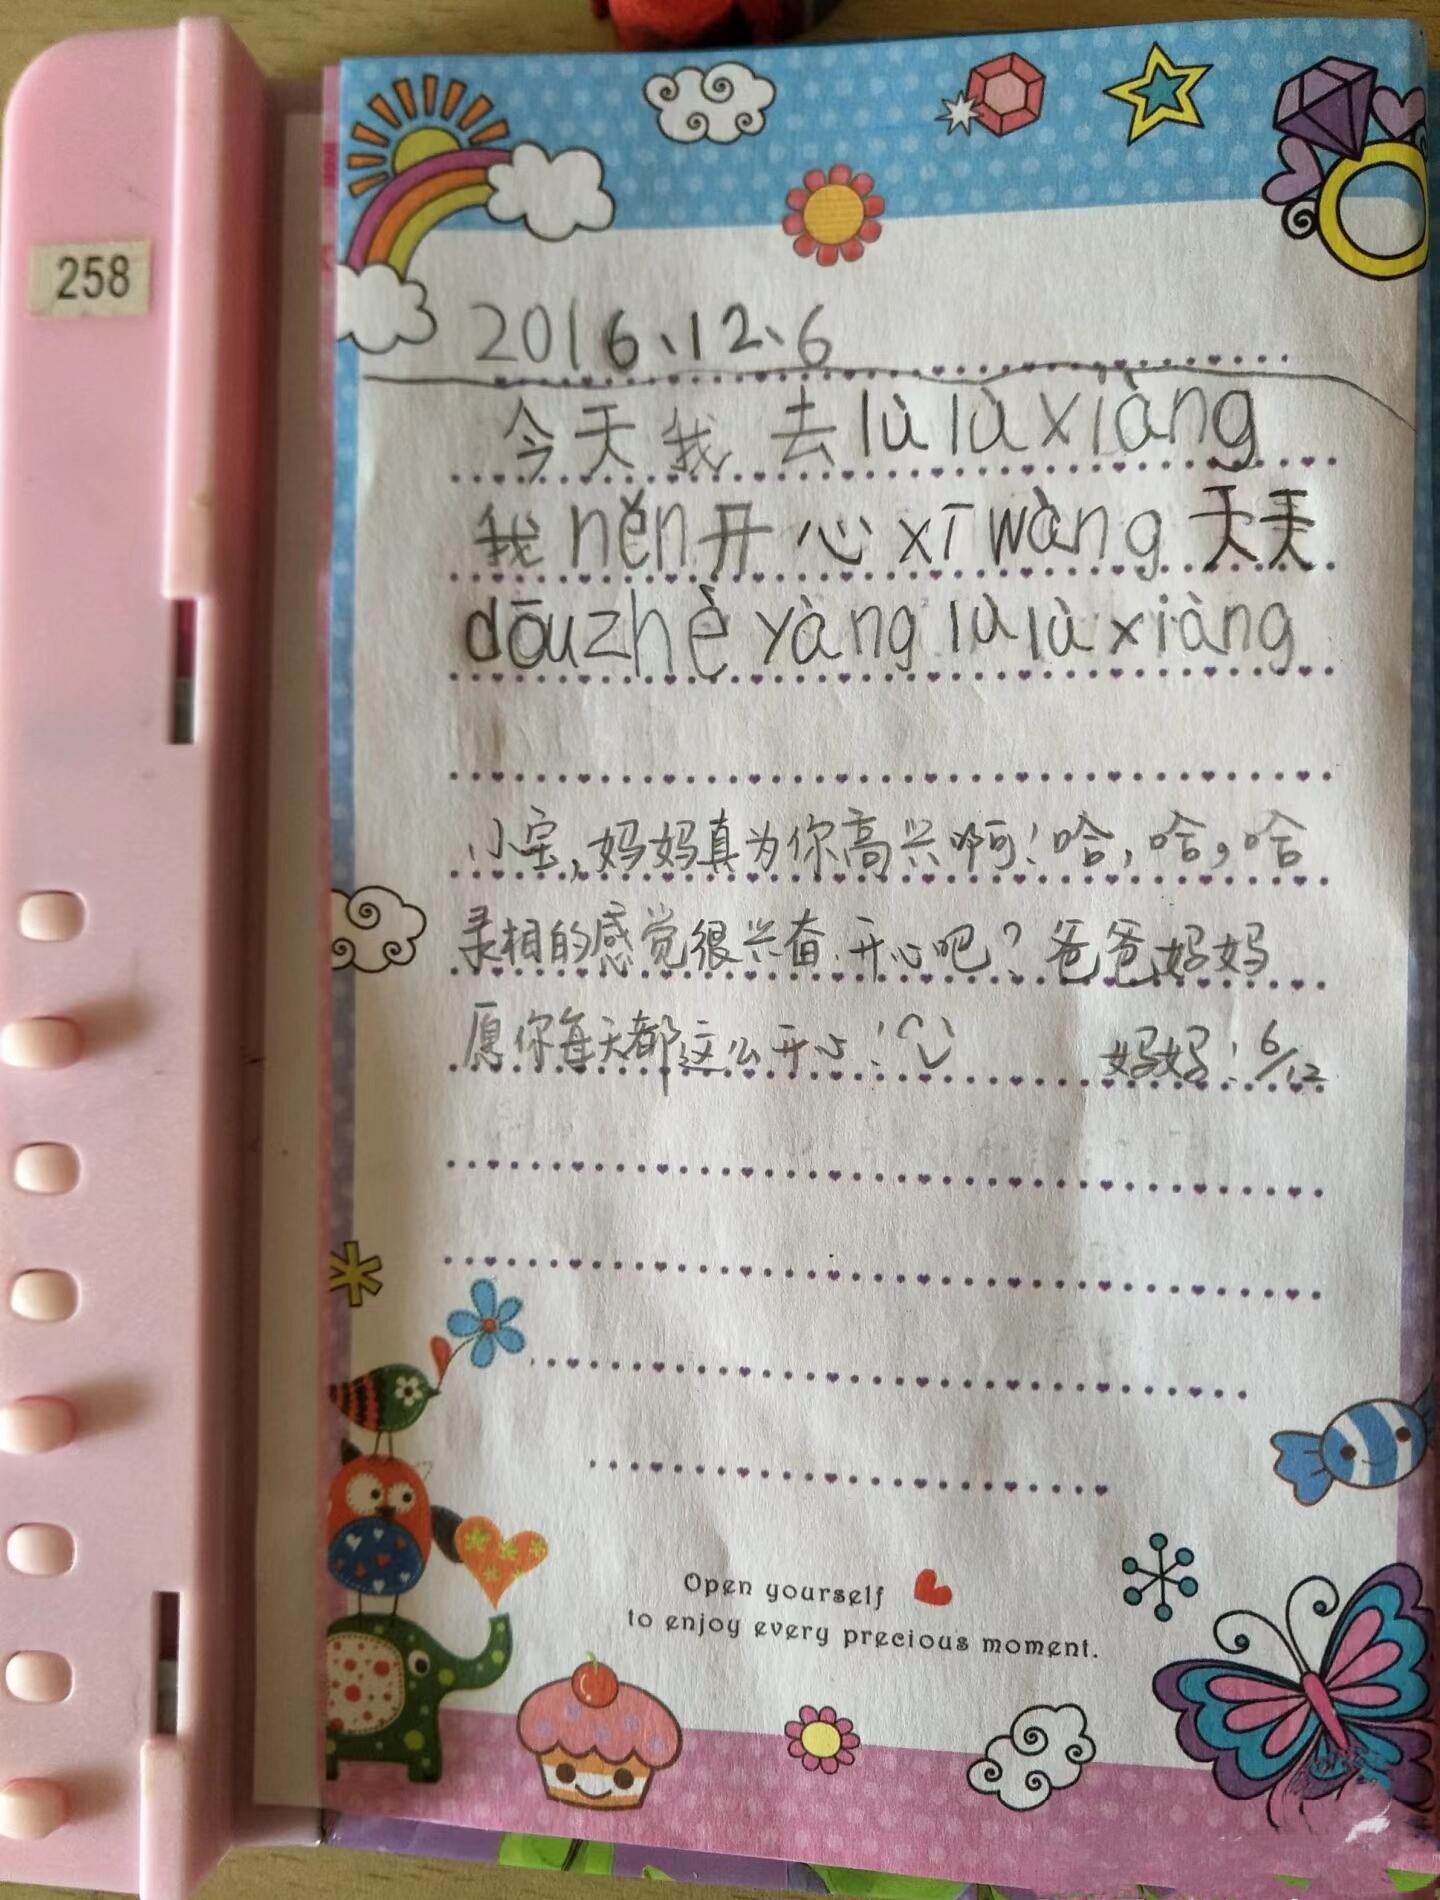 258
2016、12、6
今天我去lù lù xiàng
我něn开心xī wàng天天
dōu zhè yàng lù lù xiàng
小宝,妈妈真为你高兴啊!哈,哈,哈
录相的感觉很兴奋.开心吧?爸爸妈妈
愿你每天都这么开心! 妈妈! 6/12
Open yourself
to enjoy every precious moment.